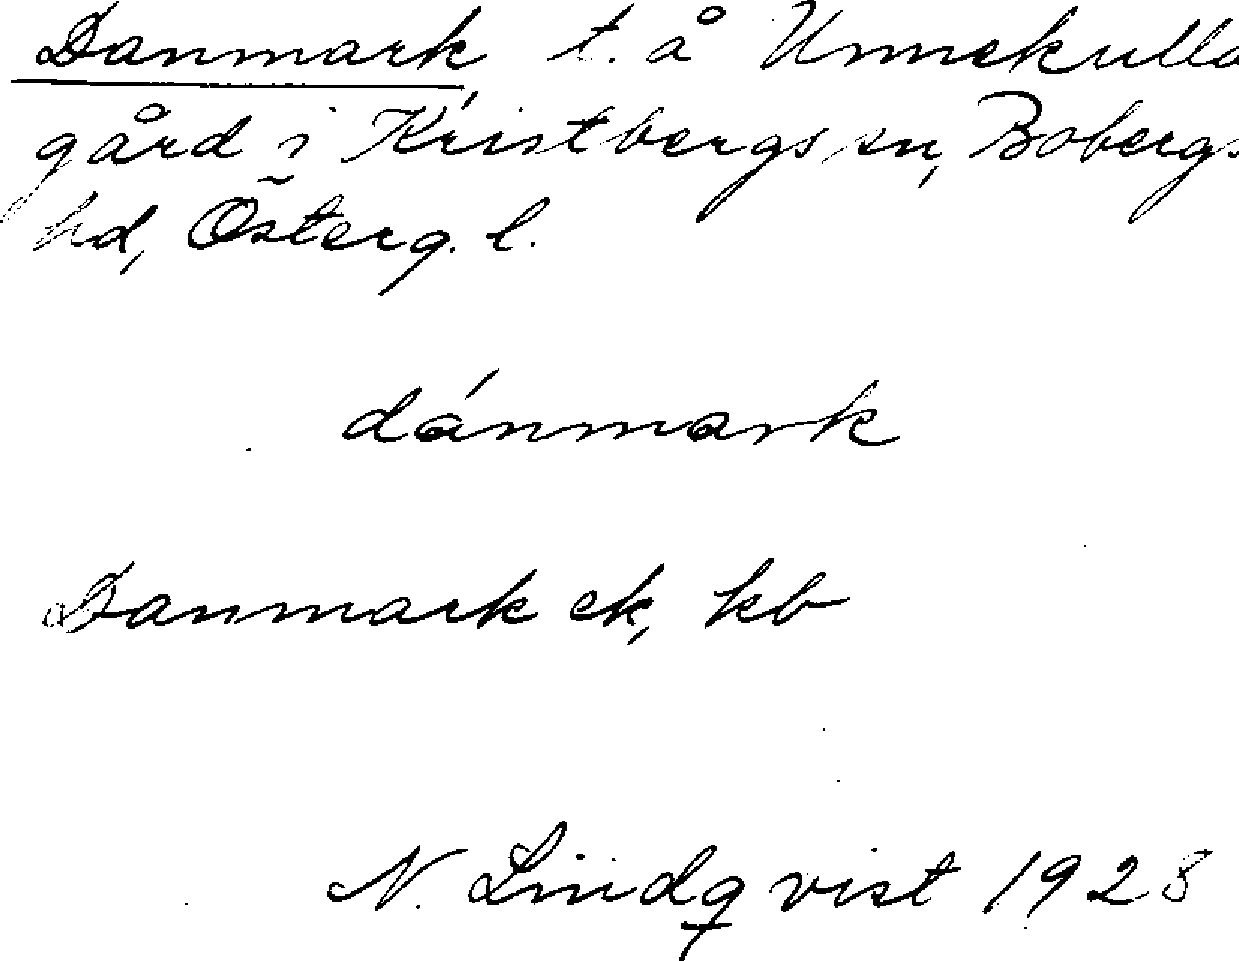 Danmark t. å Unnekulla
gård i Kristbergs sn, Bobergs
hd, Österg. l.
dánmark
Danmark ek, kb
N. Lindqvist 1928